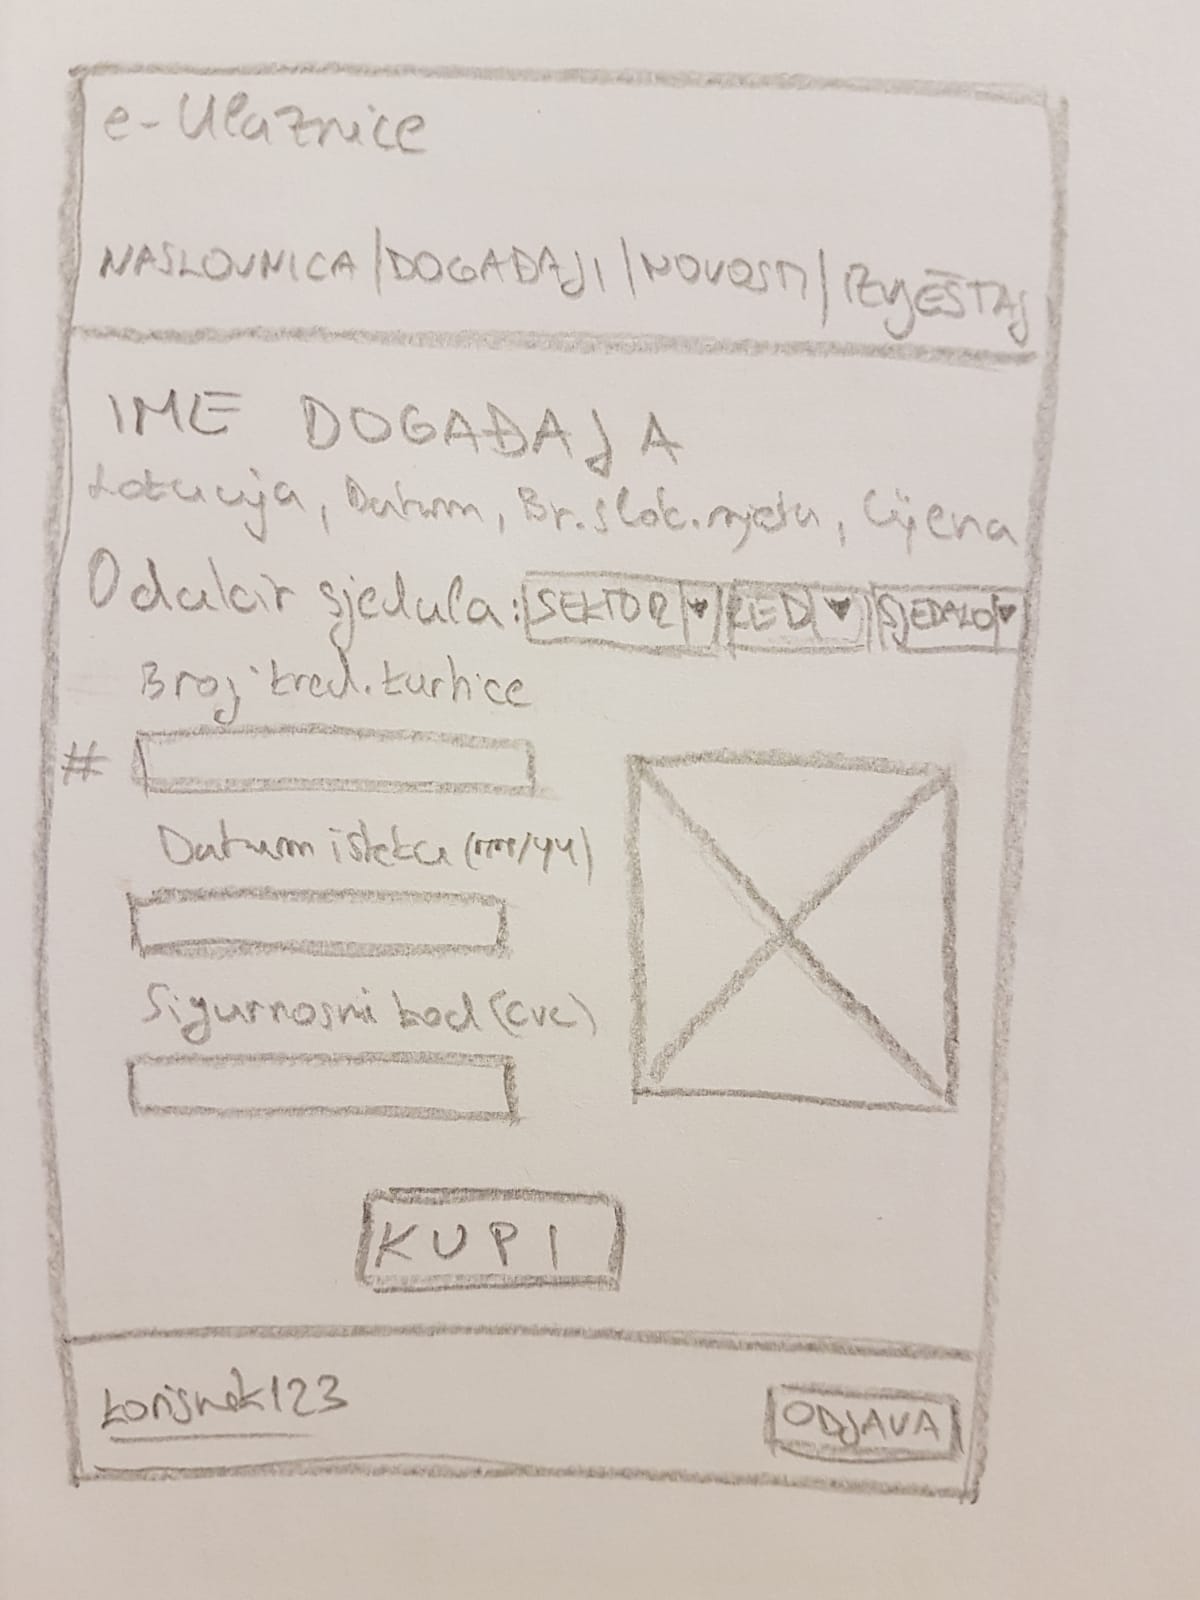 e-Ulaznice
NASLOVNICA | DOGAĐAJI | NOVOSTI | IZVJEŠTAJ
IME DOGAĐAJA
Lokacija, Datum, Br. slob. mjesta, Cijena
Odabir sjedala: SEKTOR ▼ RED ▼ SJEDALO ▼
Broj kred. kartice
#
Datum isteka (mm/yy)
Sigurnosni kod (cvc)
KUPI
korisnik123 ODJAVA